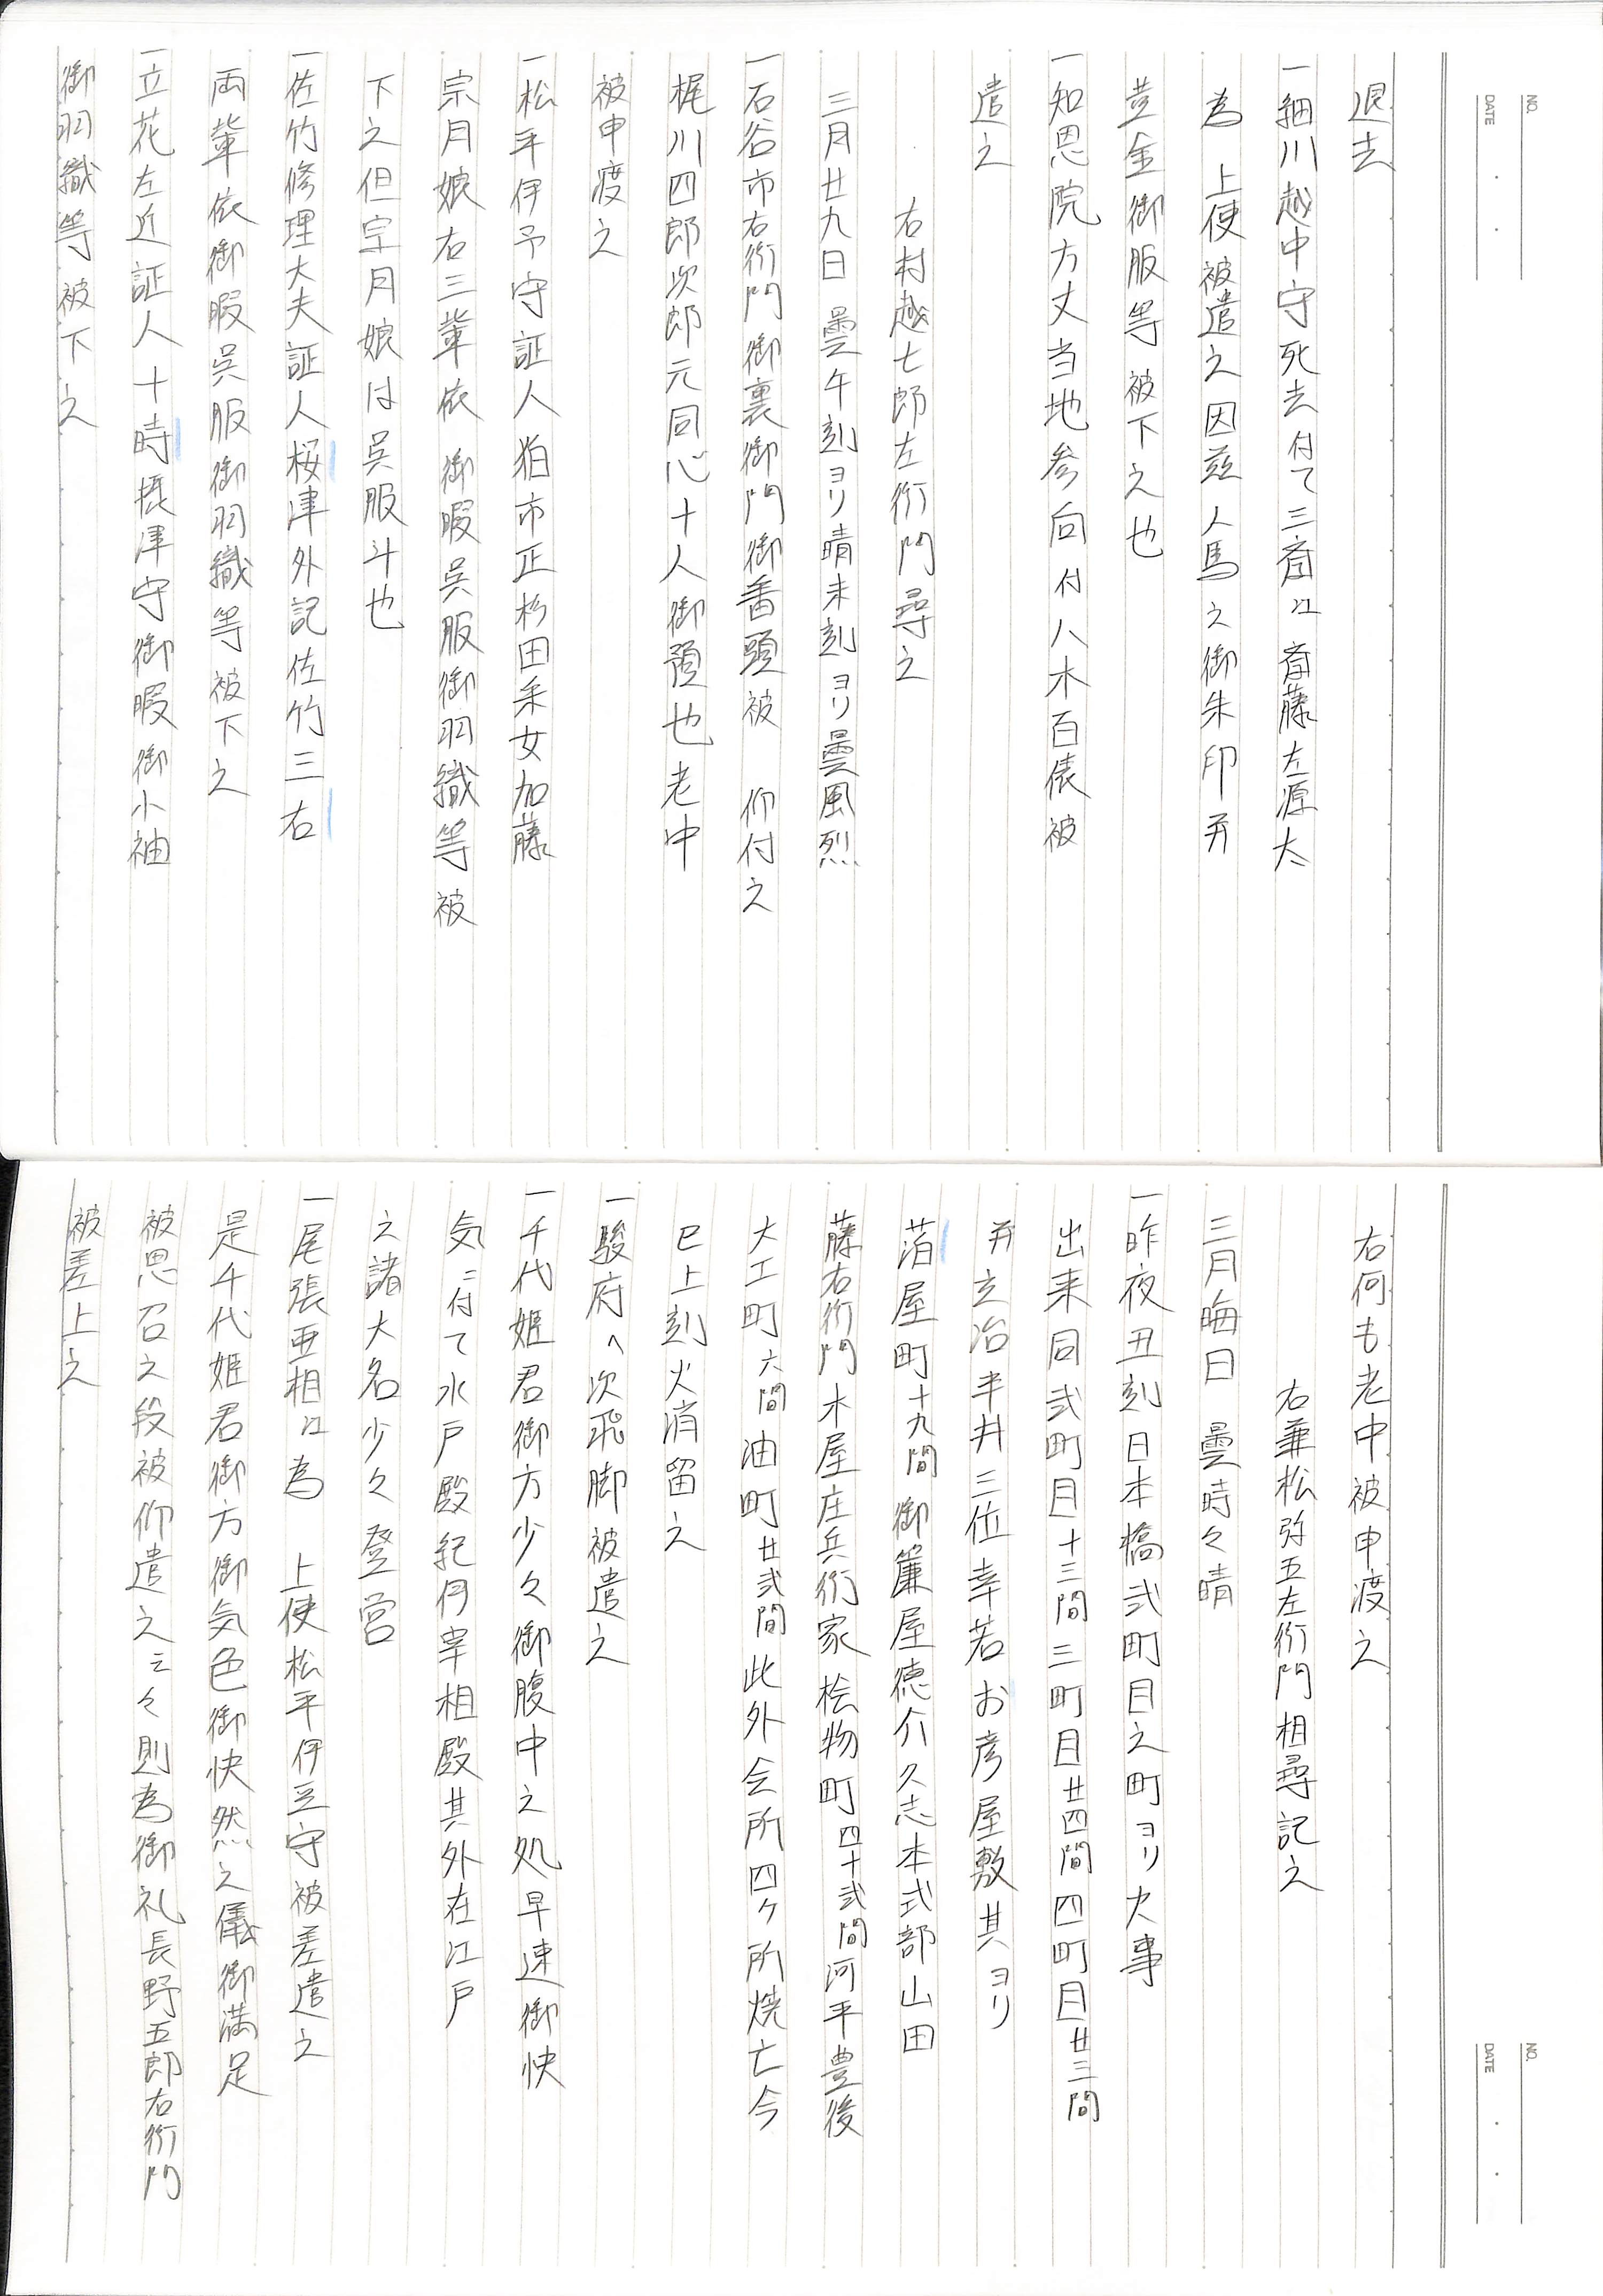 NO.
DATE
退去
一細川越中守死去付て三斎江斎藤左源太
為 上使被遣之因茲人馬之御朱印并
黄金御服等被下之也
一知恩院方丈当地参向付八木百俵被
遣之
右村越七郎左衛門尋之
三月廿九日 曇午刻ヨリ晴未刻ヨリ曇風烈
一石谷市右衛門御裏御門御番頭被 仰付之
梶川四郎次郎元同心十人御預也老中
被申渡之
一松平伊予守証人狛市正杉田采女加藤
宗月娘右三輩依 御暇呉服御羽織等被
下之但宗月娘は呉服斗也
一佐竹修理大夫証人桜津外記佐竹三右
両輩依御暇呉服御羽織等被下之
一立花左近証人十時摂津守御暇御小袖
御羽織等被下之
NO.
DATE
右何も老中被申渡之
右兼松弥五左衛門相尋記之
三月晦日 曇時々晴
一昨夜丑刻日本橋弐町目之町ヨリ火事
出来同弐町目十三間三町目廿四間四町目廿三間
并立冶半井三位幸若お彦屋敷其ヨリ
箔屋町十九間御簾屋徳介久志本式部山田
藤右衛門木屋庄兵衛家桧物町四十弐間河平豊後
大工町六間油町廿弐間此外会所四ケ所焼亡今
巳上刻火消留之
一駿府へ次飛脚被遣之
一千代姫君御方少々御腹中之処早速御快
気ニ付て水戸殿紀伊宰相殿其外在江戸
之諸大名少々登営
一尾張亜相江為 上使松平伊豆守被差遣之
是千代姫君御方御気色御快然之儀御満足
被思召之段被仰遣之云々則為御礼長野五郎右衛門
被差上之